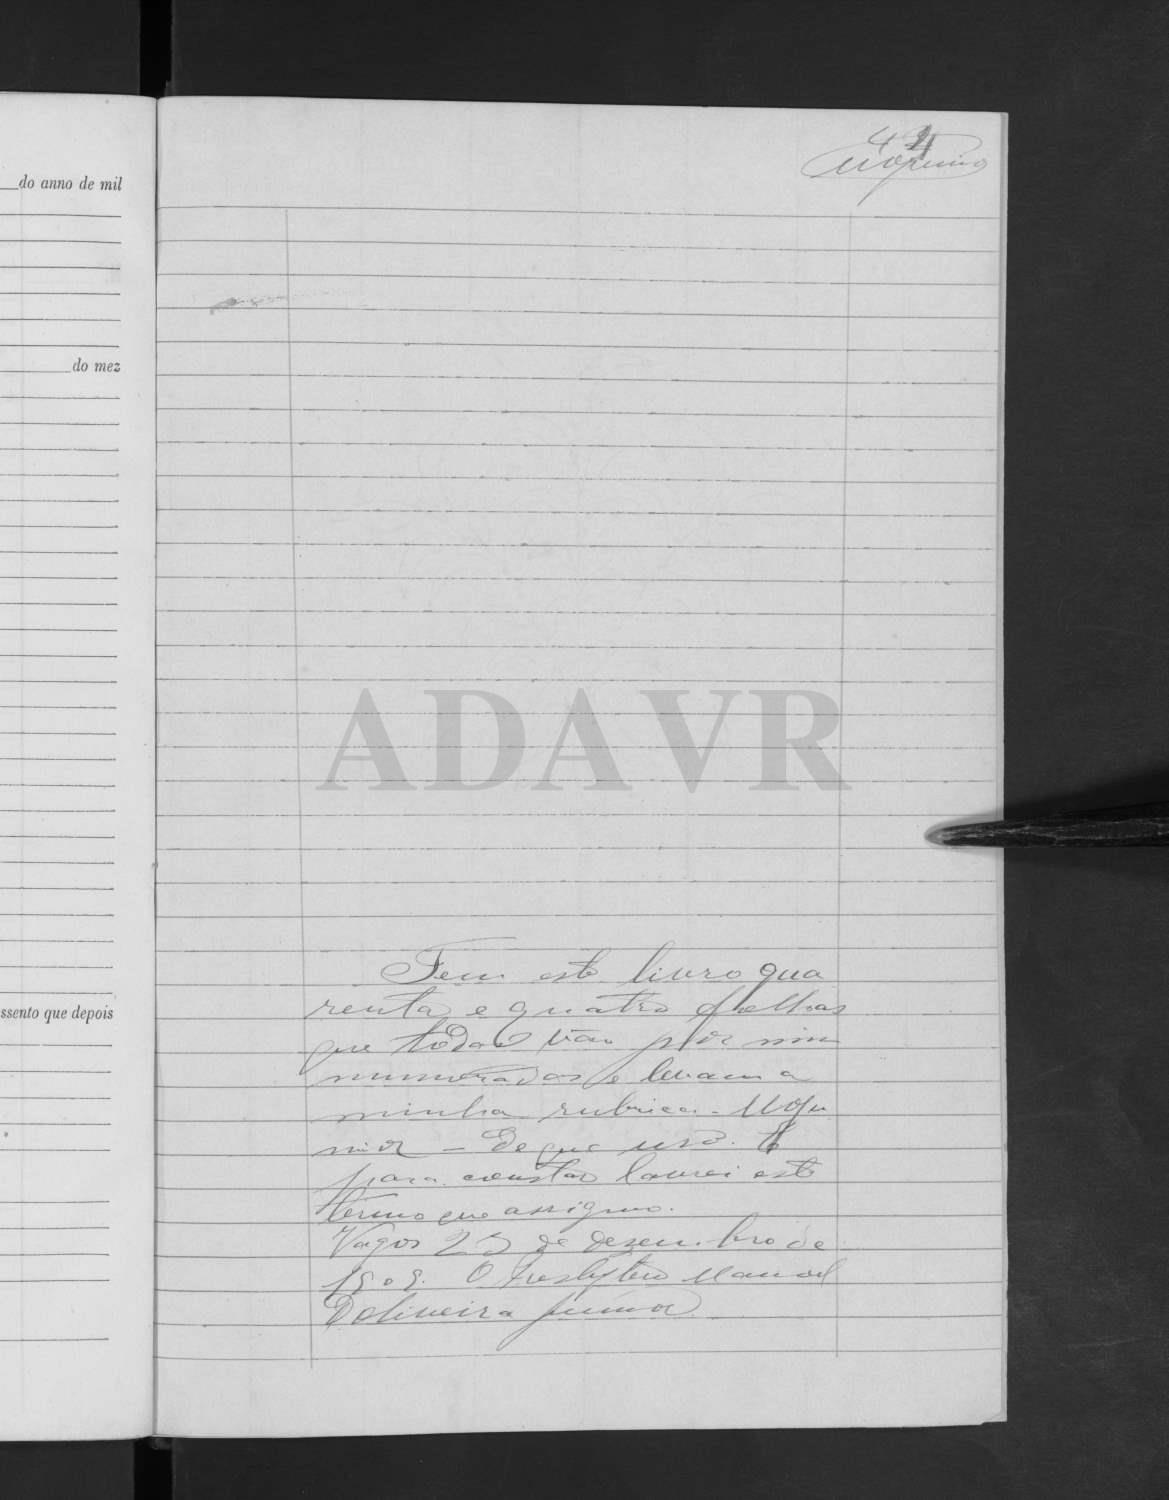 44
do anno de mil
do mez
ssento que depois
ADAVR
Tem este livro qua
renta e quatro folhas
que todas vão por mim
numeradas e levam a
minha rubrica -
- de que uso. E
para constar lavrei este
termo que assigno.
Vagos 23 de dezembro de
1909. O Presbytero Manoel
D'Oliveira Junior